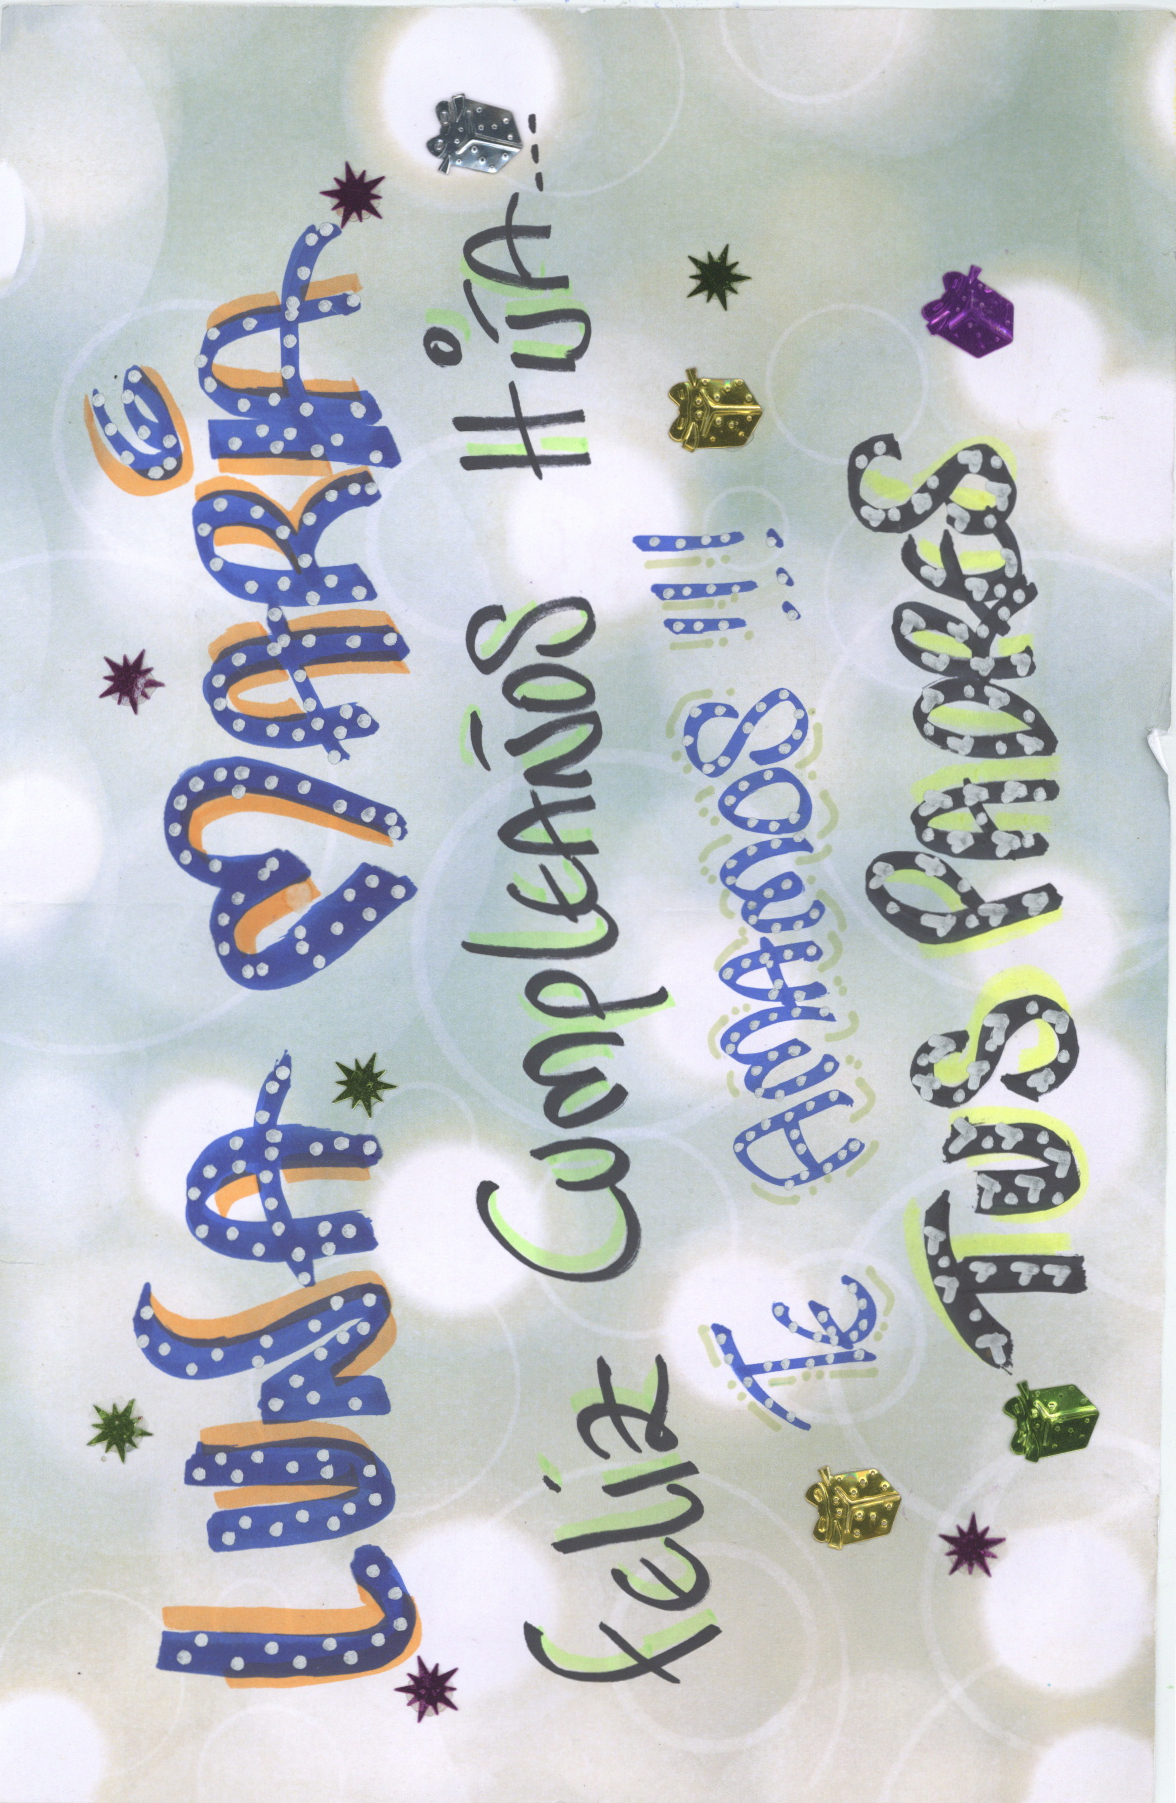 LUISA MARIA
Feliz CumpleAÑOS HIJA---
Te AMAMOS !!!
TUS PADRES